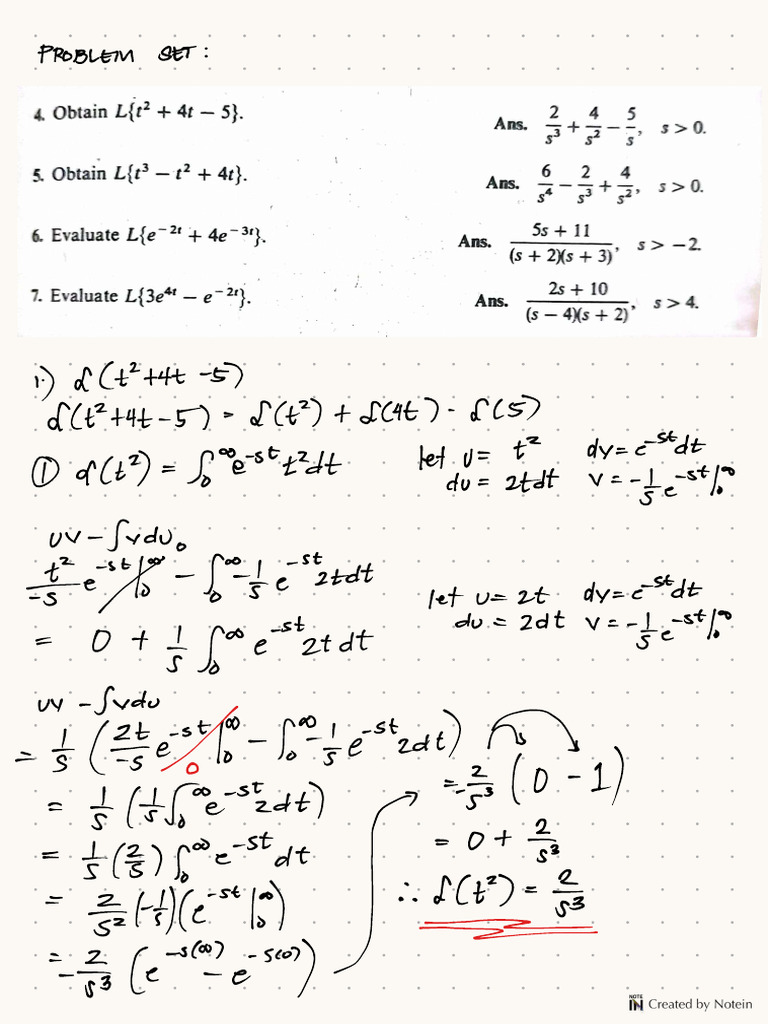 PROBLEM SET:
4. Obtain L{t² + 4t − 5}. Ans. 2/s³ + 4/s² − 5/s, s > 0.
5. Obtain L{t³ − t² + 4t}. Ans. 6/s⁴ − 2/s³ + 4/s², s > 0.
6. Evaluate L{e⁻²ᵗ + 4e⁻³ᵗ}. Ans. (5s + 11)/((s + 2)(s + 3)), s > −2.
7. Evaluate L{3e⁴ᵗ − e⁻²ᵗ}. Ans. (2s + 10)/((s − 4)(s + 2)), s > 4.
1.) ℒ(t² + 4t − 5)
ℒ(t² + 4t − 5) = ℒ(t²) + ℒ(4t) − ℒ(5)
① ℒ(t²) = ∫₀^∞ e^-st t² dt
let u = t² dv = e^-st dt
du = 2tdt v = −1/s e^-st |₀^∞
uv − ∫vdu
t²/-s e^-st |₀^∞ − ∫₀^∞ −1/s e^-st 2tdt
= 0 + 1/s ∫₀^∞ e^-st 2t dt
let u = 2t dv = e^-st dt
du = 2dt v = −1/s e^-st |₀^∞
uv − ∫vdu
= 1/s (2t/-s e^-st |₀^∞ − ∫₀^∞ −1/s e^-st 2dt)
0
= 1/s (1/s ∫₀^∞ e^-st 2dt)
= 1/s (2/s) ∫₀^∞ e^-st dt
= 2/s² (−1/s)(e^-st |₀^∞)
= −2/s³ (e^-s(∞) − e^-s(0))
= −2/s³ (0 − 1)
= 0 + 2/s³
∴ ℒ(t²) = 2/s³
NOTE IN Created by Notein